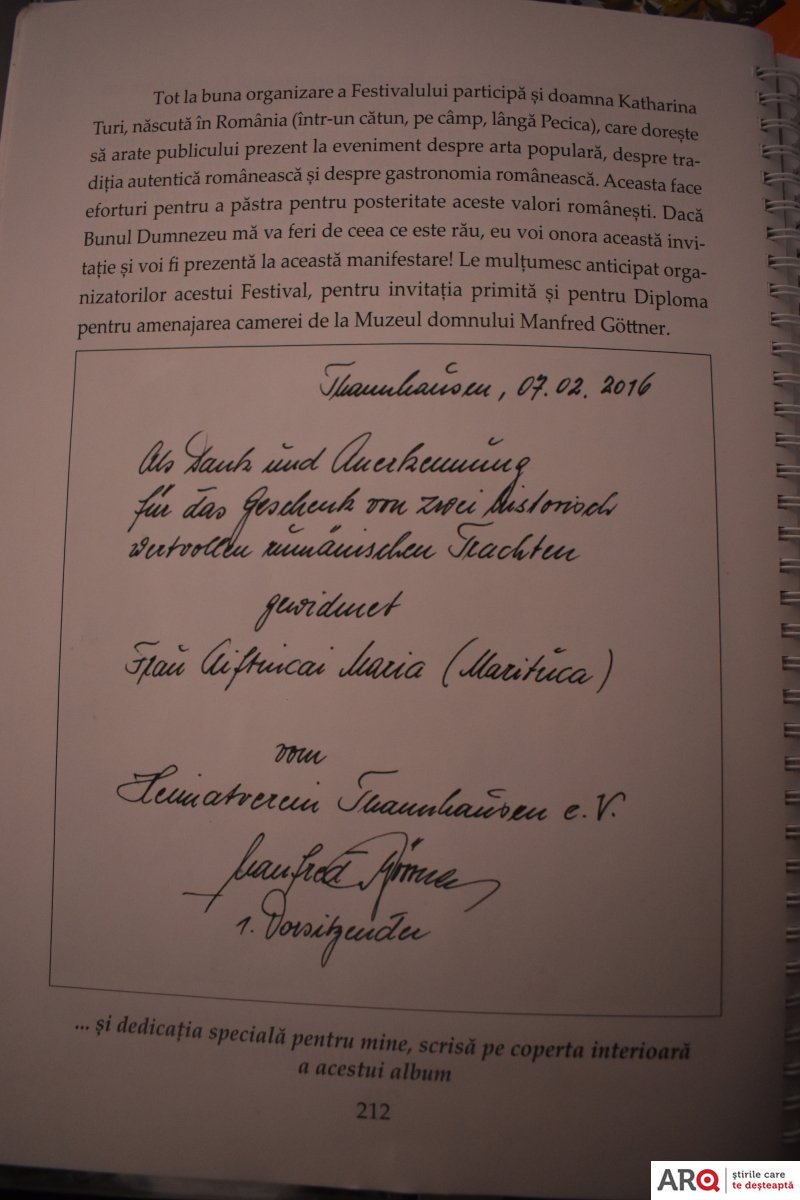 Tot la buna organizare a Festivalului participă și doamna Katharina
Turi, născută în România (într-un cătun, pe câmp, lângă Pecica), care dorește
să arate publicului prezent la eveniment despre arta populară, despre tra-
diția autentică românească și despre gastronomia românească. Aceasta face
eforturi pentru a păstra pentru posteritate aceste valori românești. Dacă
Bunul Dumnezeu mă va feri de ceea ce este rău, eu voi onora această invi-
tație și voi fi prezentă la această manifestare! Le mulțumesc anticipat orga-
nizatorilor acestui Festival, pentru invitația primită și pentru Diploma
pentru amenajarea camerei de la Muzeul domnului Manfred Göttner.
Thannhausen, 07.02.2016
Als Dank und Anerkennung
für das Geschenk von zwei historisch
wertvollen rumänischen Trachten
gewidmet
Frau Aiftincai Maria (Marituca)
vom
Heimatverein Thannhausen e.V.
Manfred Göttner
1. Vorsitzender
... și dedicația specială pentru mine, scrisă pe coperta interioară
a acestui album
212
ARQ
știrile care
te deșteaptă